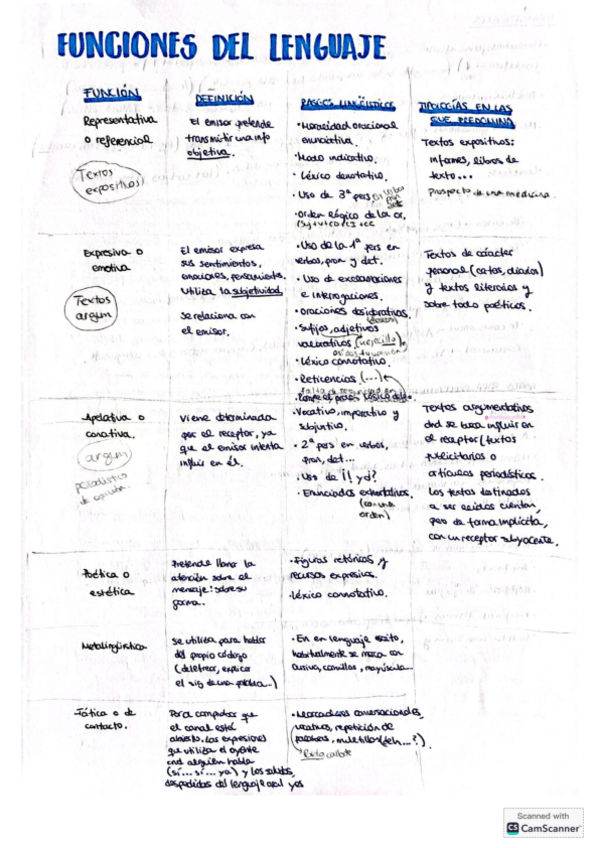 FUNCIONES DEL LENGUAJE
FUNCIÓN
DEFINICIÓN
RASGOS LINGÜÍSTICOS
TIPOLOGÍAS EN LAS
QUE PREDOMINA
Representativa
o referencial
Textos
expositivos
El emisor pretende
transmitir una info
objetiva.
Modalidad oracional
enunciativa.
Modo indicativo.
Léxico denotativo.
Uso de 3ª pers
Orden lógico de la or.
Textos expositivos:
informes, libros de
texto...
Prospecto de una medicina.
Expresiva o
emotiva
Textos
argum
El emisor expresa
sus sentimientos,
emociones, pensamientos.
Utiliza la subjetividad.
Se relaciona con
el emisor.
Uso de la 1ª pers en
verbos, pron y det.
Uso de exclamaciones
e interrogaciones.
Oraciones desiderativas.
Sufijos, adjetivos
valorativos
Léxico connotativo.
Reticencias (...)
Textos de carácter
personal (cartas, diarios)
y textos literarios y
sobre todo poéticos.
Apelativa o
conativa.
argum
periodístico
de opinión.
Viene determinada
por el receptor, ya
que el emisor intenta
influir en él.
Vocativo, imperativo y
subjuntivo.
2ª pers en verbos,
pron, det...
Uso de ¡! y ¿?
Enunciados exhortativos.
(con una
orden)
Textos argumentativos
dnd se busca influir en
el receptor (textos
publicitarios o
artículos periodísticos.
Los textos destinados
a ser leídos cuentan,
pero de forma implícita,
con un receptor subyacente.
Poética o
estética.
Pretende llamar la
atención sobre el
mensaje: sobre su
forma.
Figuras retóricas y
recursos expresivos.
Léxico connotativo.
Metalingüística
Se utiliza para hablar
del propio código
(deletrear, explicar
el sig de una palabra...)
En en lenguaje escrito,
habitualmente se marca con
cursiva, comillas, mayúscula...
Fática o de
contacto.
Para comprobar que
el canal está
abierto. Las expresiones
que utiliza el oyente
cnd alguien habla
(sí... sí... ya) y los saludos,
despedidas del lenguaje oral
Marcadores conversacionales,
vocativos, repetición de
palabras, muletillas (eh...?)
Scanned with
CS CamScanner